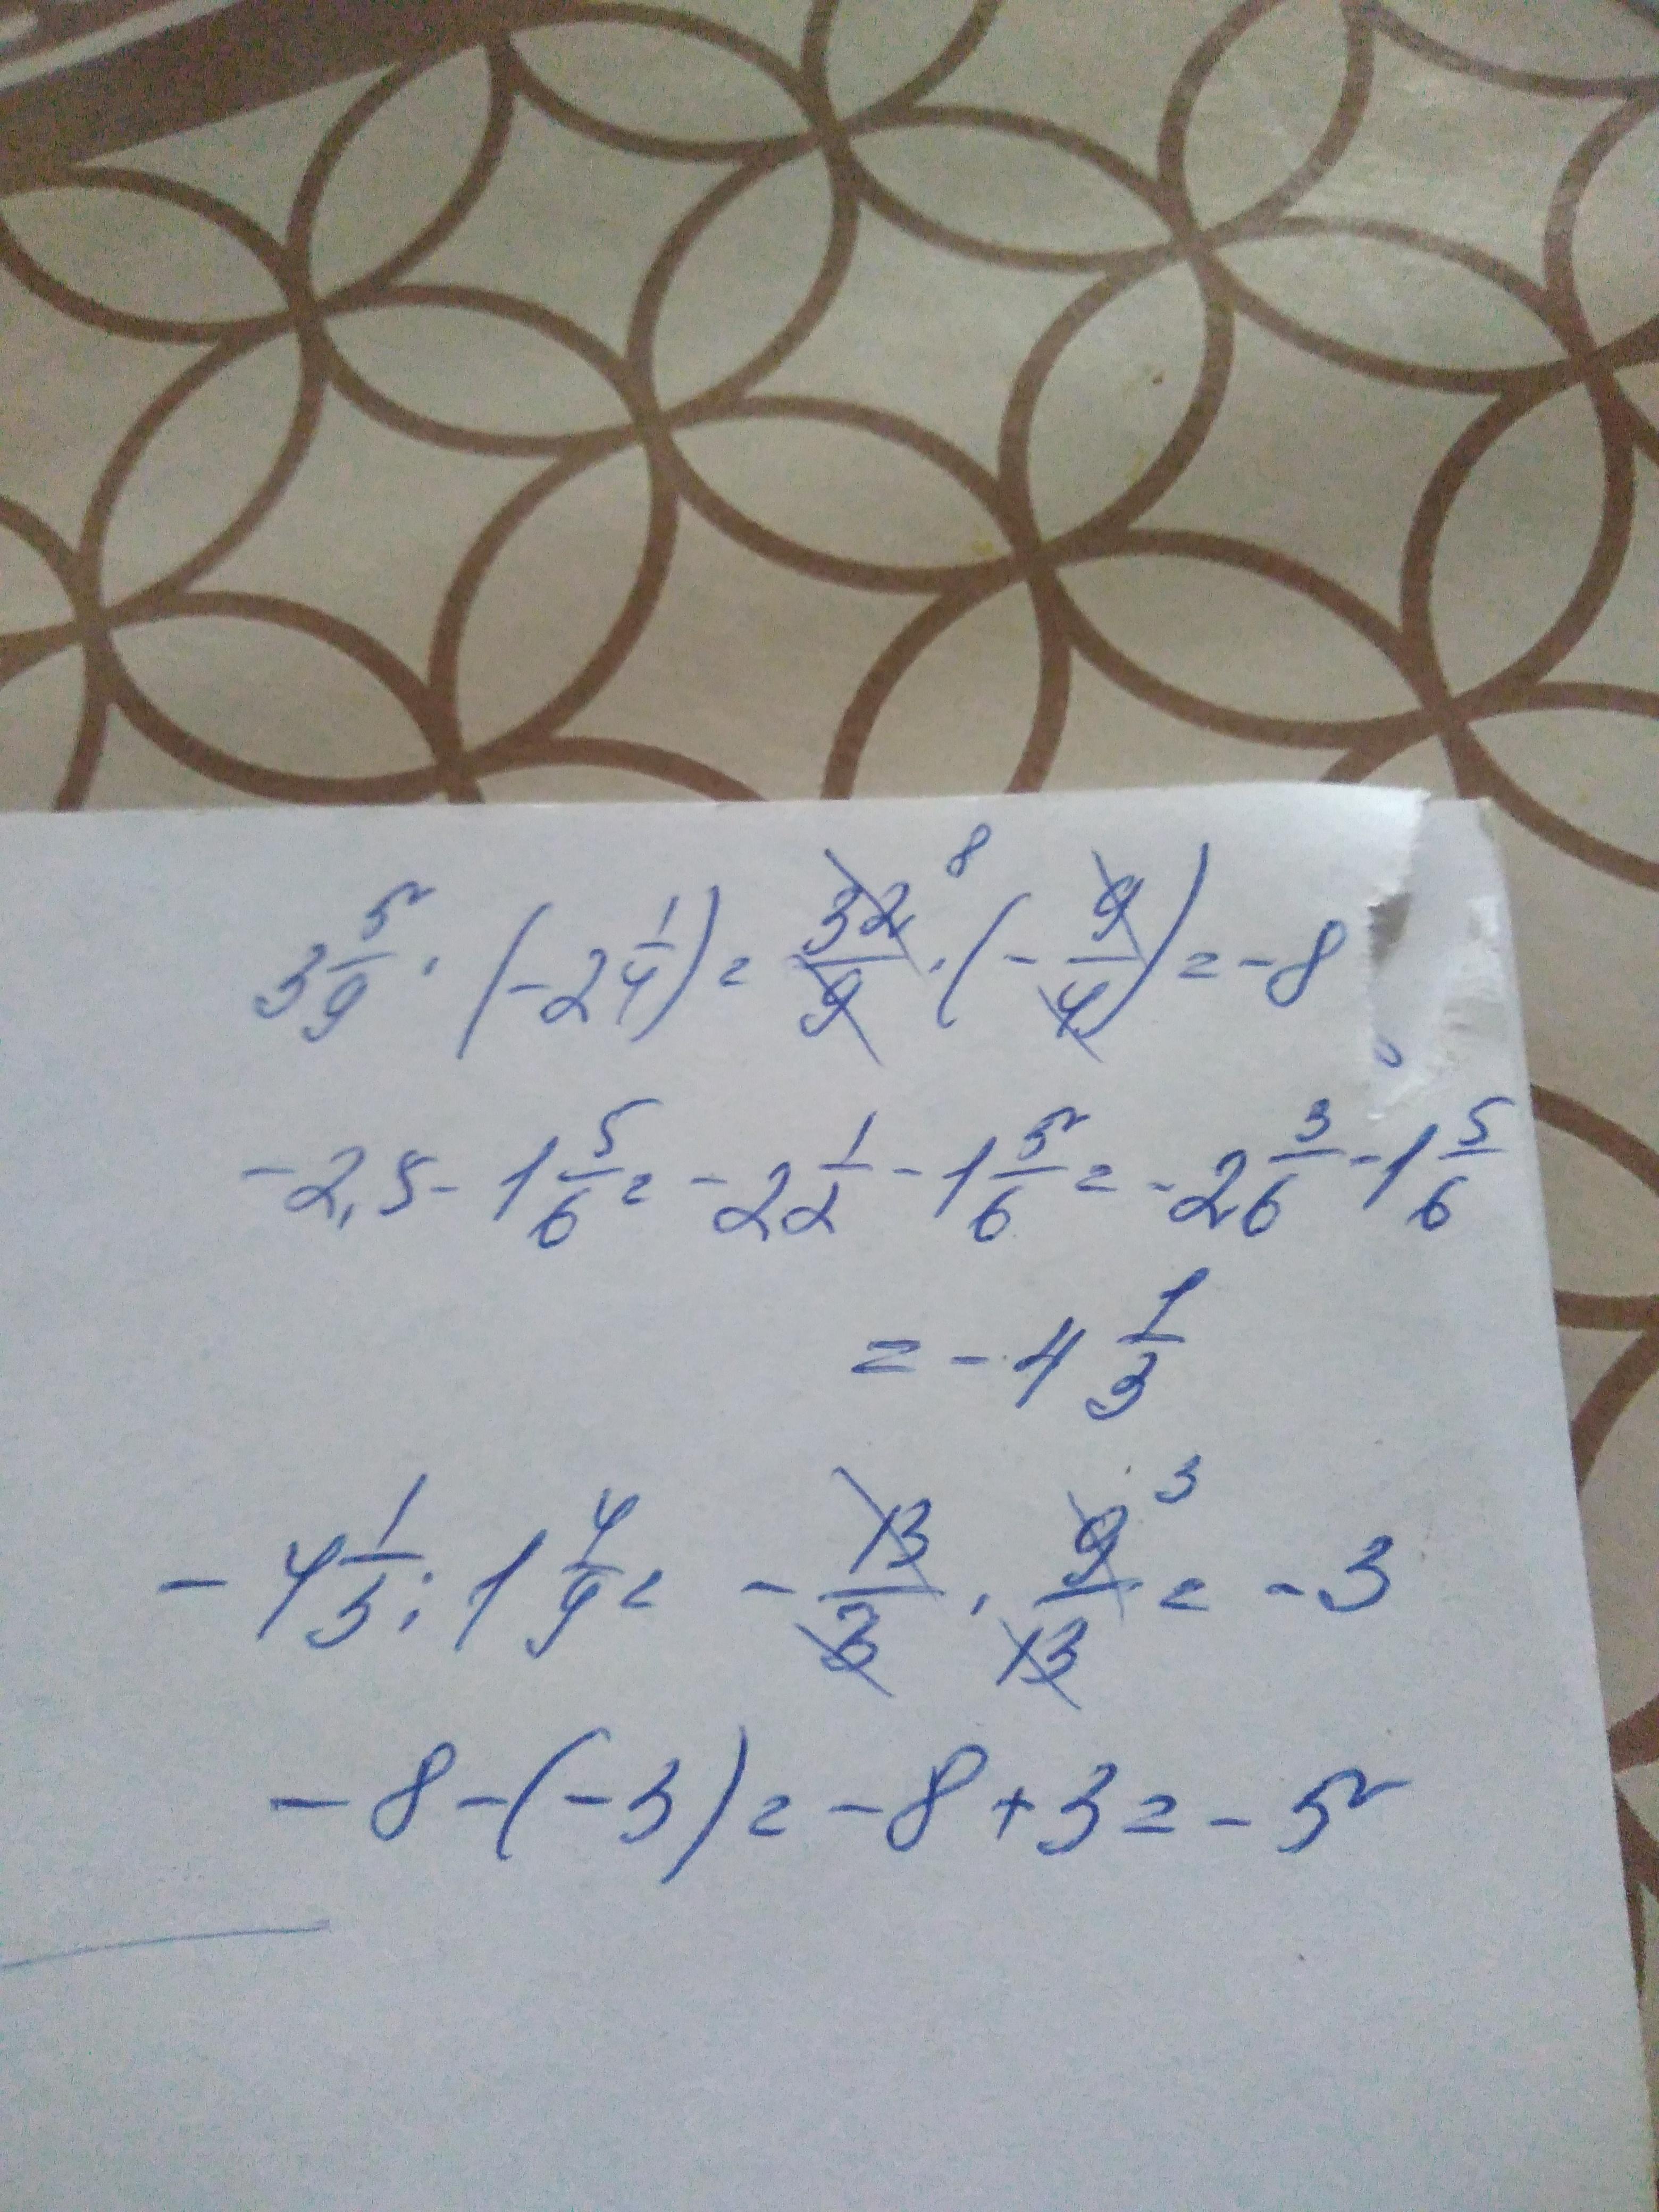 3 5/9 · (-2 1/4) = 32/9 8 · (- 9/4) = -8
-2,5 - 1 5/6 = -2 1/2 - 1 5/6 = -2 3/6 - 1 5/6
= -4 1/3
-4 1/3 : 1 4/9 = - 13/3 · 9/13 3 = -3
-8 - (-3) = -8 + 3 = -5